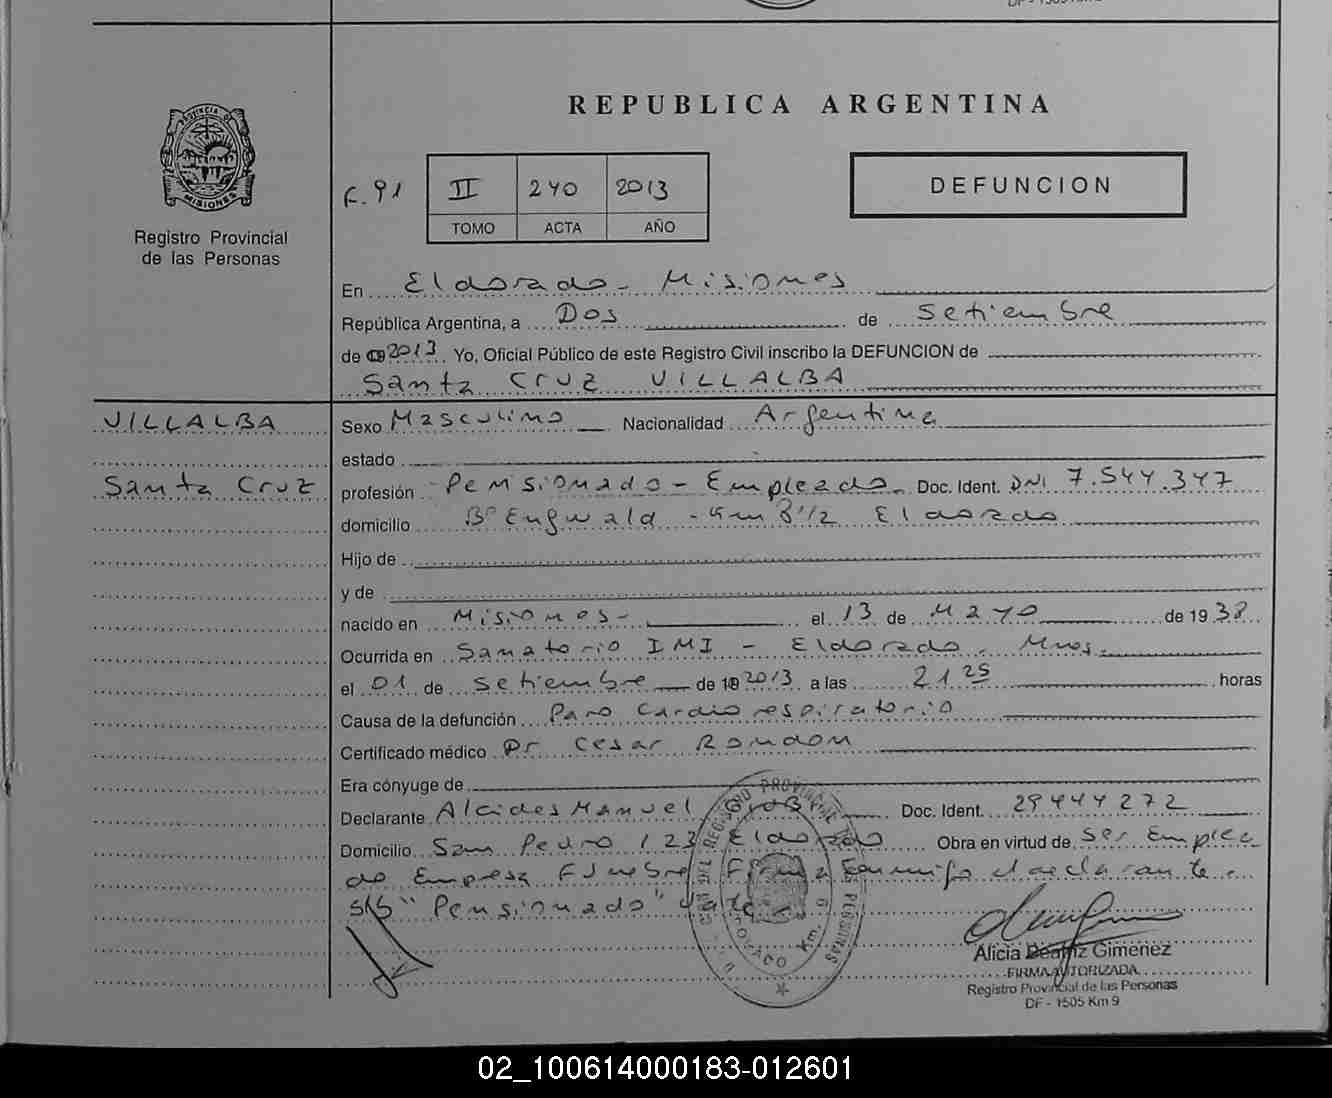 REPUBLICA ARGENTINA
PROVINCIA DE
MISIONES
Registro Provincial
de las Personas
F. 91
II 240 2013
TOMO ACTA AÑO
DEFUNCION
En Eldorado - Misiones
República Argentina, a Dos de Setiembre
de 2013. Yo, Oficial Público de este Registro Civil inscribo la DEFUNCION de
Santa Cruz VILLALBA
VILLALBA
Santa Cruz
Sexo Masculino Nacionalidad Argentina
estado
profesión Pensionado - Empleado Doc. Ident. DNI 7.544.347
domicilio Bº Engwald - Km 8 1/2 Eldorado
Hijo de
y de
nacido en Misiones - el 13 de Mayo de 1938
Ocurrida en Sanatorio IMI - Eldorado. Mnes.
el 01 de Setiembre de 2013 a las 21 25 horas
Causa de la defunción Paro Cardio respiratorio
Certificado médico Dr Cesar Rondon
Era cónyuge de
Declarante Alcides Manuel Doc. Ident. 29444272
Domicilio San Pedro 123 Eldorado Obra en virtud de Ser Emplea
do Empresa Fúnebre Firma Conmigo el declarante.
S/b "Pensionado" Vale
Alicia Beatriz Gimenez
FIRMA AUTORIZADA
Registro Provincial de las Personas
DF - 1505 Km 9
02_100614000183-012601